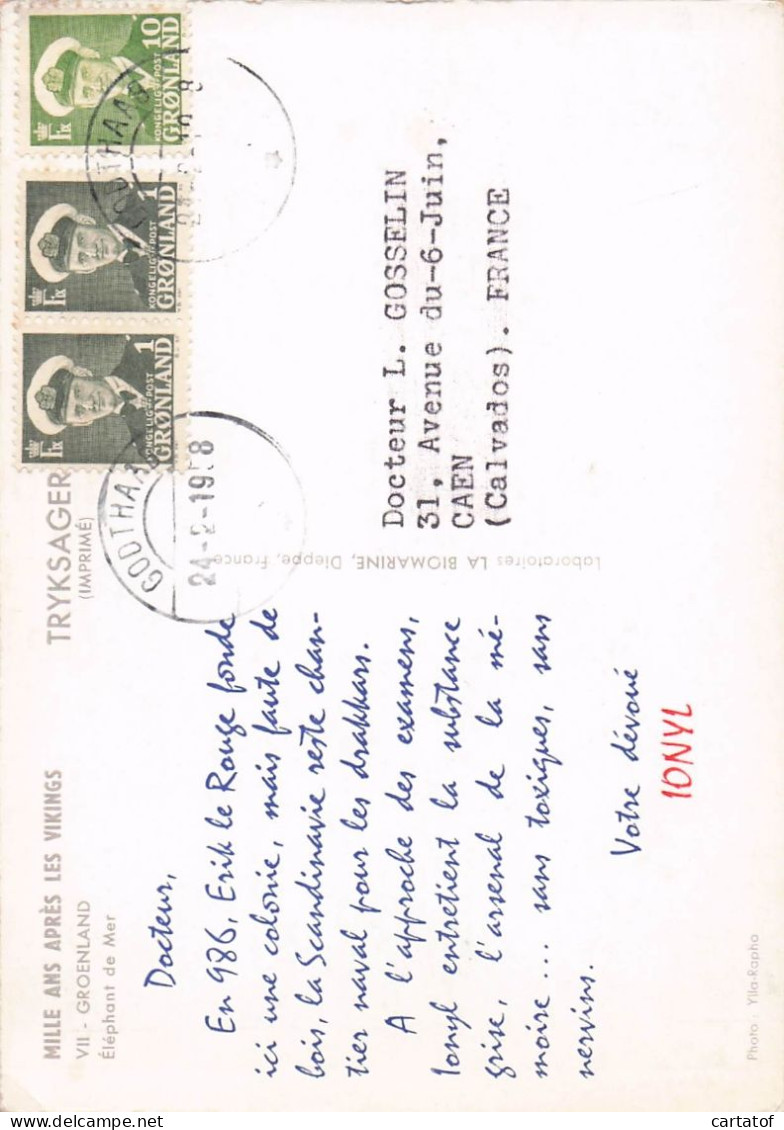 MILLE ANS APRÈS LES VIKINGS
VII. - GROENLAND
Éléphant de Mer
TRYKSAGER
(IMPRIMÉ)
Docteur,
En 986, Erik le Rouge fonde
ici une colonie, mais faute de
bois, la Scandinavie reste chan-
tier naval pour les drakkars.
A l'approche des examens,
Ionyl entretient la substance
grise, l'arsenal de la mé-
moire ... sans toxiques, sans
nervins.
Votre dévoué
IONYL
Photo : Ylla-Rapho
Laboratoires LA BIOMARINE, Dieppe, France
Docteur L. GOSSELIN
31, Avenue du-6-Juin,
CAEN
(Calvados). FRANCE
1
KONGELIG POST
GRØNLAND
1
KONGELIG POST
GRØNLAND
10
KONGELIG POST
GRØNLAND
GODTHAAB
24-2-19 8
GODTHAAB
cartatof